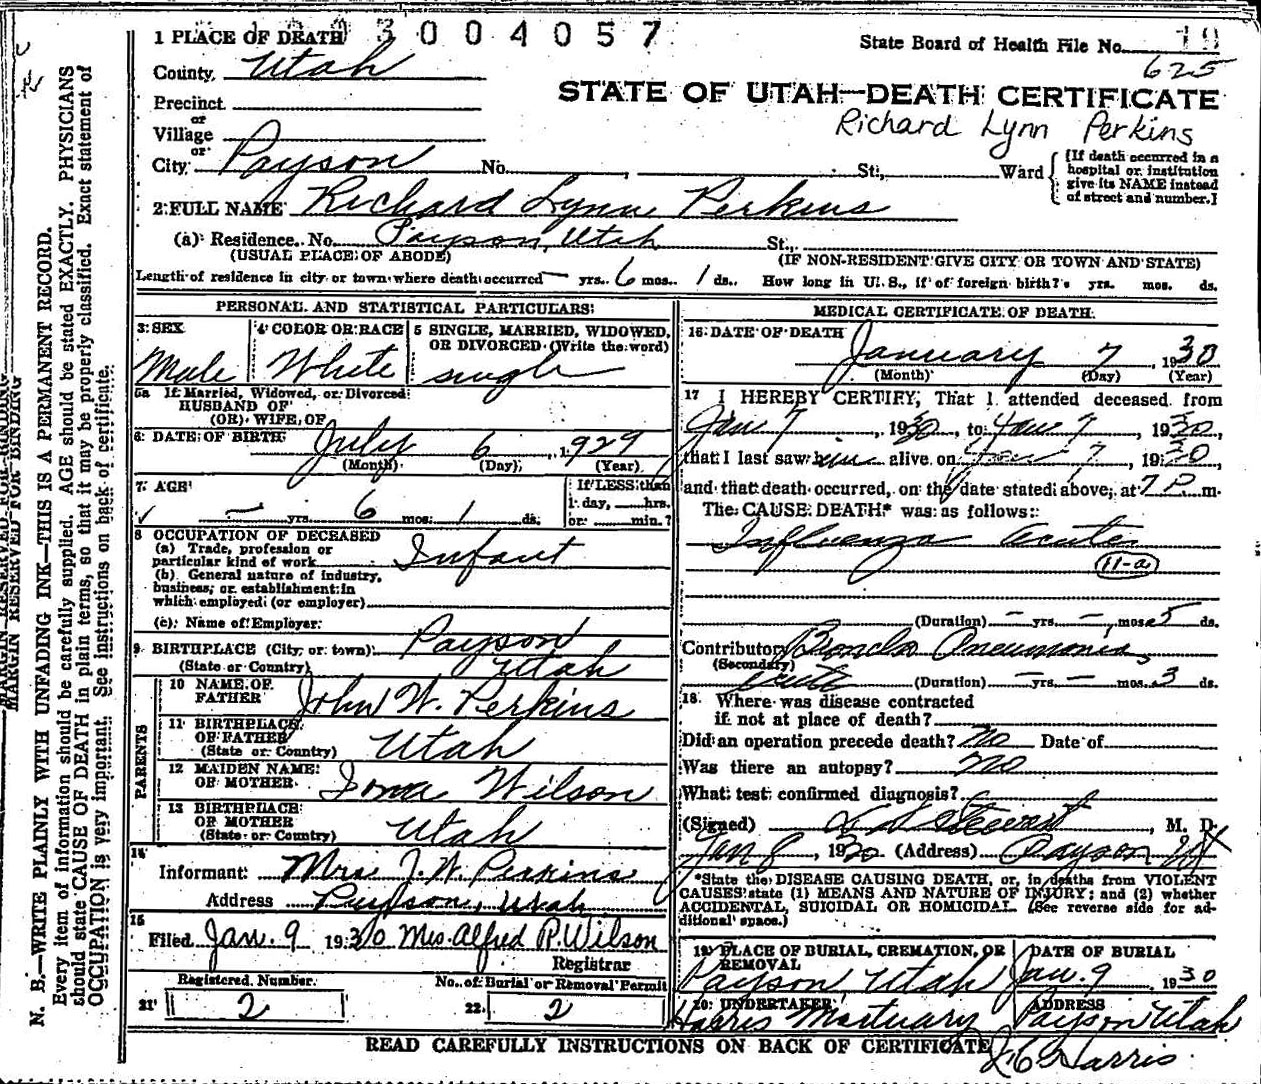 1 PLACE OF DEATH 3004057
State Board of Health File No. 10
County Utah
625
STATE OF UTAH—DEATH CERTIFICATE
Precinct
or
Village
Richard Lynn Perkins
or
City Payson No. , St., Ward {If death occurred in a hospital or institution give its NAME instead of street and number.}
2 FULL NAME Richard Lynn Perkins
(a) Residence. No. Payson, Utah St.,
(USUAL PLACE OF ABODE) (IF NON-RESIDENT GIVE CITY OR TOWN AND STATE)
Length of residence in city or town where death occurred — yrs. 6 mos. 1 ds. How long in U. S., if of foreign birth? yrs. mos. ds.
PERSONAL AND STATISTICAL PARTICULARS
3 SEX 4 COLOR OR RACE 5 SINGLE, MARRIED, WIDOWED,
OR DIVORCED (Write the word)
Male White single
5a If Married, Widowed, or Divorced
HUSBAND OF
(OR) WIFE OF
6 DATE OF BIRTH July 6, 1929
(Month) (Day) (Year)
7 AGE If LESS than
1 day, hrs.
— yrs. 6 mos. 1 ds. or min.?
8 OCCUPATION OF DECEASED
(a) Trade, profession or
particular kind of work Infant
(b) General nature of industry,
business, or establishment in
which employed (or employer)
(c) Name of Employer
9 BIRTHPLACE (City or town) Payson
(State or Country) Utah
PARENTS
10 NAME OF
FATHER John W. Perkins
11 BIRTHPLACE
OF FATHER
(State or Country) Utah
12 MAIDEN NAME
OF MOTHER Iona Wilson
13 BIRTHPLACE
OF MOTHER
(State or Country) Utah
14
Informant Mrs J. W. Perkins
Address Payson, Utah
15
Filed Jan. 9 1930 Mrs. Alfred P. Wilson
Registrar
Registered Number No. of Burial or Removal Permit
21 2 22 2
MEDICAL CERTIFICATE OF DEATH
16 DATE OF DEATH
January 7 1930
(Month) (Day) (Year)
17 I HEREBY CERTIFY, That I attended deceased from
Jan 7, 1930, to Jan 7, 1930,
that I last saw him alive on Jan 7, 1930,
and that death occurred, on the date stated above, at 7 P. m.
The CAUSE DEATH* was as follows:
Influenza acute
11-a
(Duration) — yrs. — mos. 5 ds.
Contributory Broncho Pneumonia,
(Secondary)
acute (Duration) — yrs. — mos. 3 ds.
18 Where was disease contracted
if not at place of death?
Did an operation precede death? No Date of
Was there an autopsy? No
What test confirmed diagnosis?
(Signed) Stewart, M. D.
Jan 8, 1930 (Address) Payson Ut
*State the DISEASE CAUSING DEATH, or, in deaths from VIOLENT
CAUSES state (1) MEANS AND NATURE OF INJURY; and (2) whether
ACCIDENTAL, SUICIDAL OR HOMICIDAL. (See reverse side for ad-
ditional space.)
19 PLACE OF BURIAL, CREMATION, OR DATE OF BURIAL
REMOVAL
Payson Utah Jan. 9 1930
20 UNDERTAKER ADDRESS
Harris Mortuary Payson Utah
READ CAREFULLY INSTRUCTIONS ON BACK OF CERTIFICATE
Harris
MARGIN RESERVED FOR BINDING
MARGIN RESERVED FOR BINDING
N. B.—WRITE PLAINLY WITH UNFADING INK—THIS IS A PERMANENT RECORD.
Every item of information should be carefully supplied. AGE should be stated EXACTLY. PHYSICIANS
should state CAUSE OF DEATH in plain terms, so that it may be properly classified. Exact statement of
OCCUPATION is very important. See instructions on back of certificate.